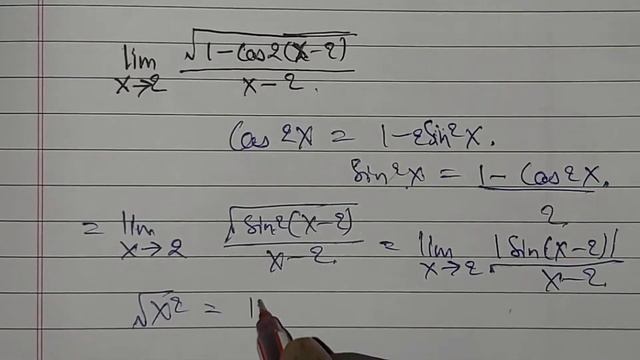 lim x→2 √(1-cos2(x-2)) / x-2.
Cos 2x = 1-2sin²x.
sin²x = 1-cos2x. / 2
= lim x→2 √(sin²(x-2)) / x-2 = lim x→2 |sin(x-2)| / x-2
√x² = |